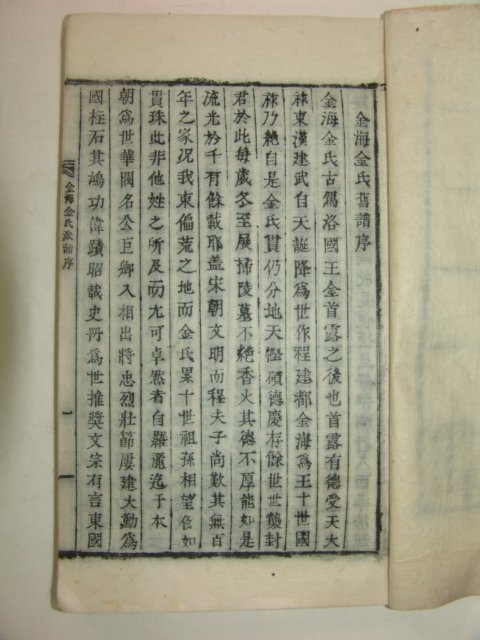 金海金氏舊譜序
金海金氏古駕洛國王金首露之後也首露有德受天大
祿東漢建武自天誕降爲世作程建都金海爲王十世國
祿乃絶自是金氏貫仍分地天慳碩德慶存餘世世襲封
君於此每歲冬至展掃陵墓不絶香火其德不厚能如是
流光於千有餘載耶盖宋朝文明而程夫子尚歎其無百
年之家况我東偏荒之地而金氏累十世祖孫相望信如
貫珠此非他姓之所及而尤可卓然者自羅麗迄于本
朝爲世華閥名公巨卿入相出將忠烈壯節屢建大勳爲
國柱石其鴻功偉蹟昭載史册爲世推奬文宗有言東國
金海金氏派譜序